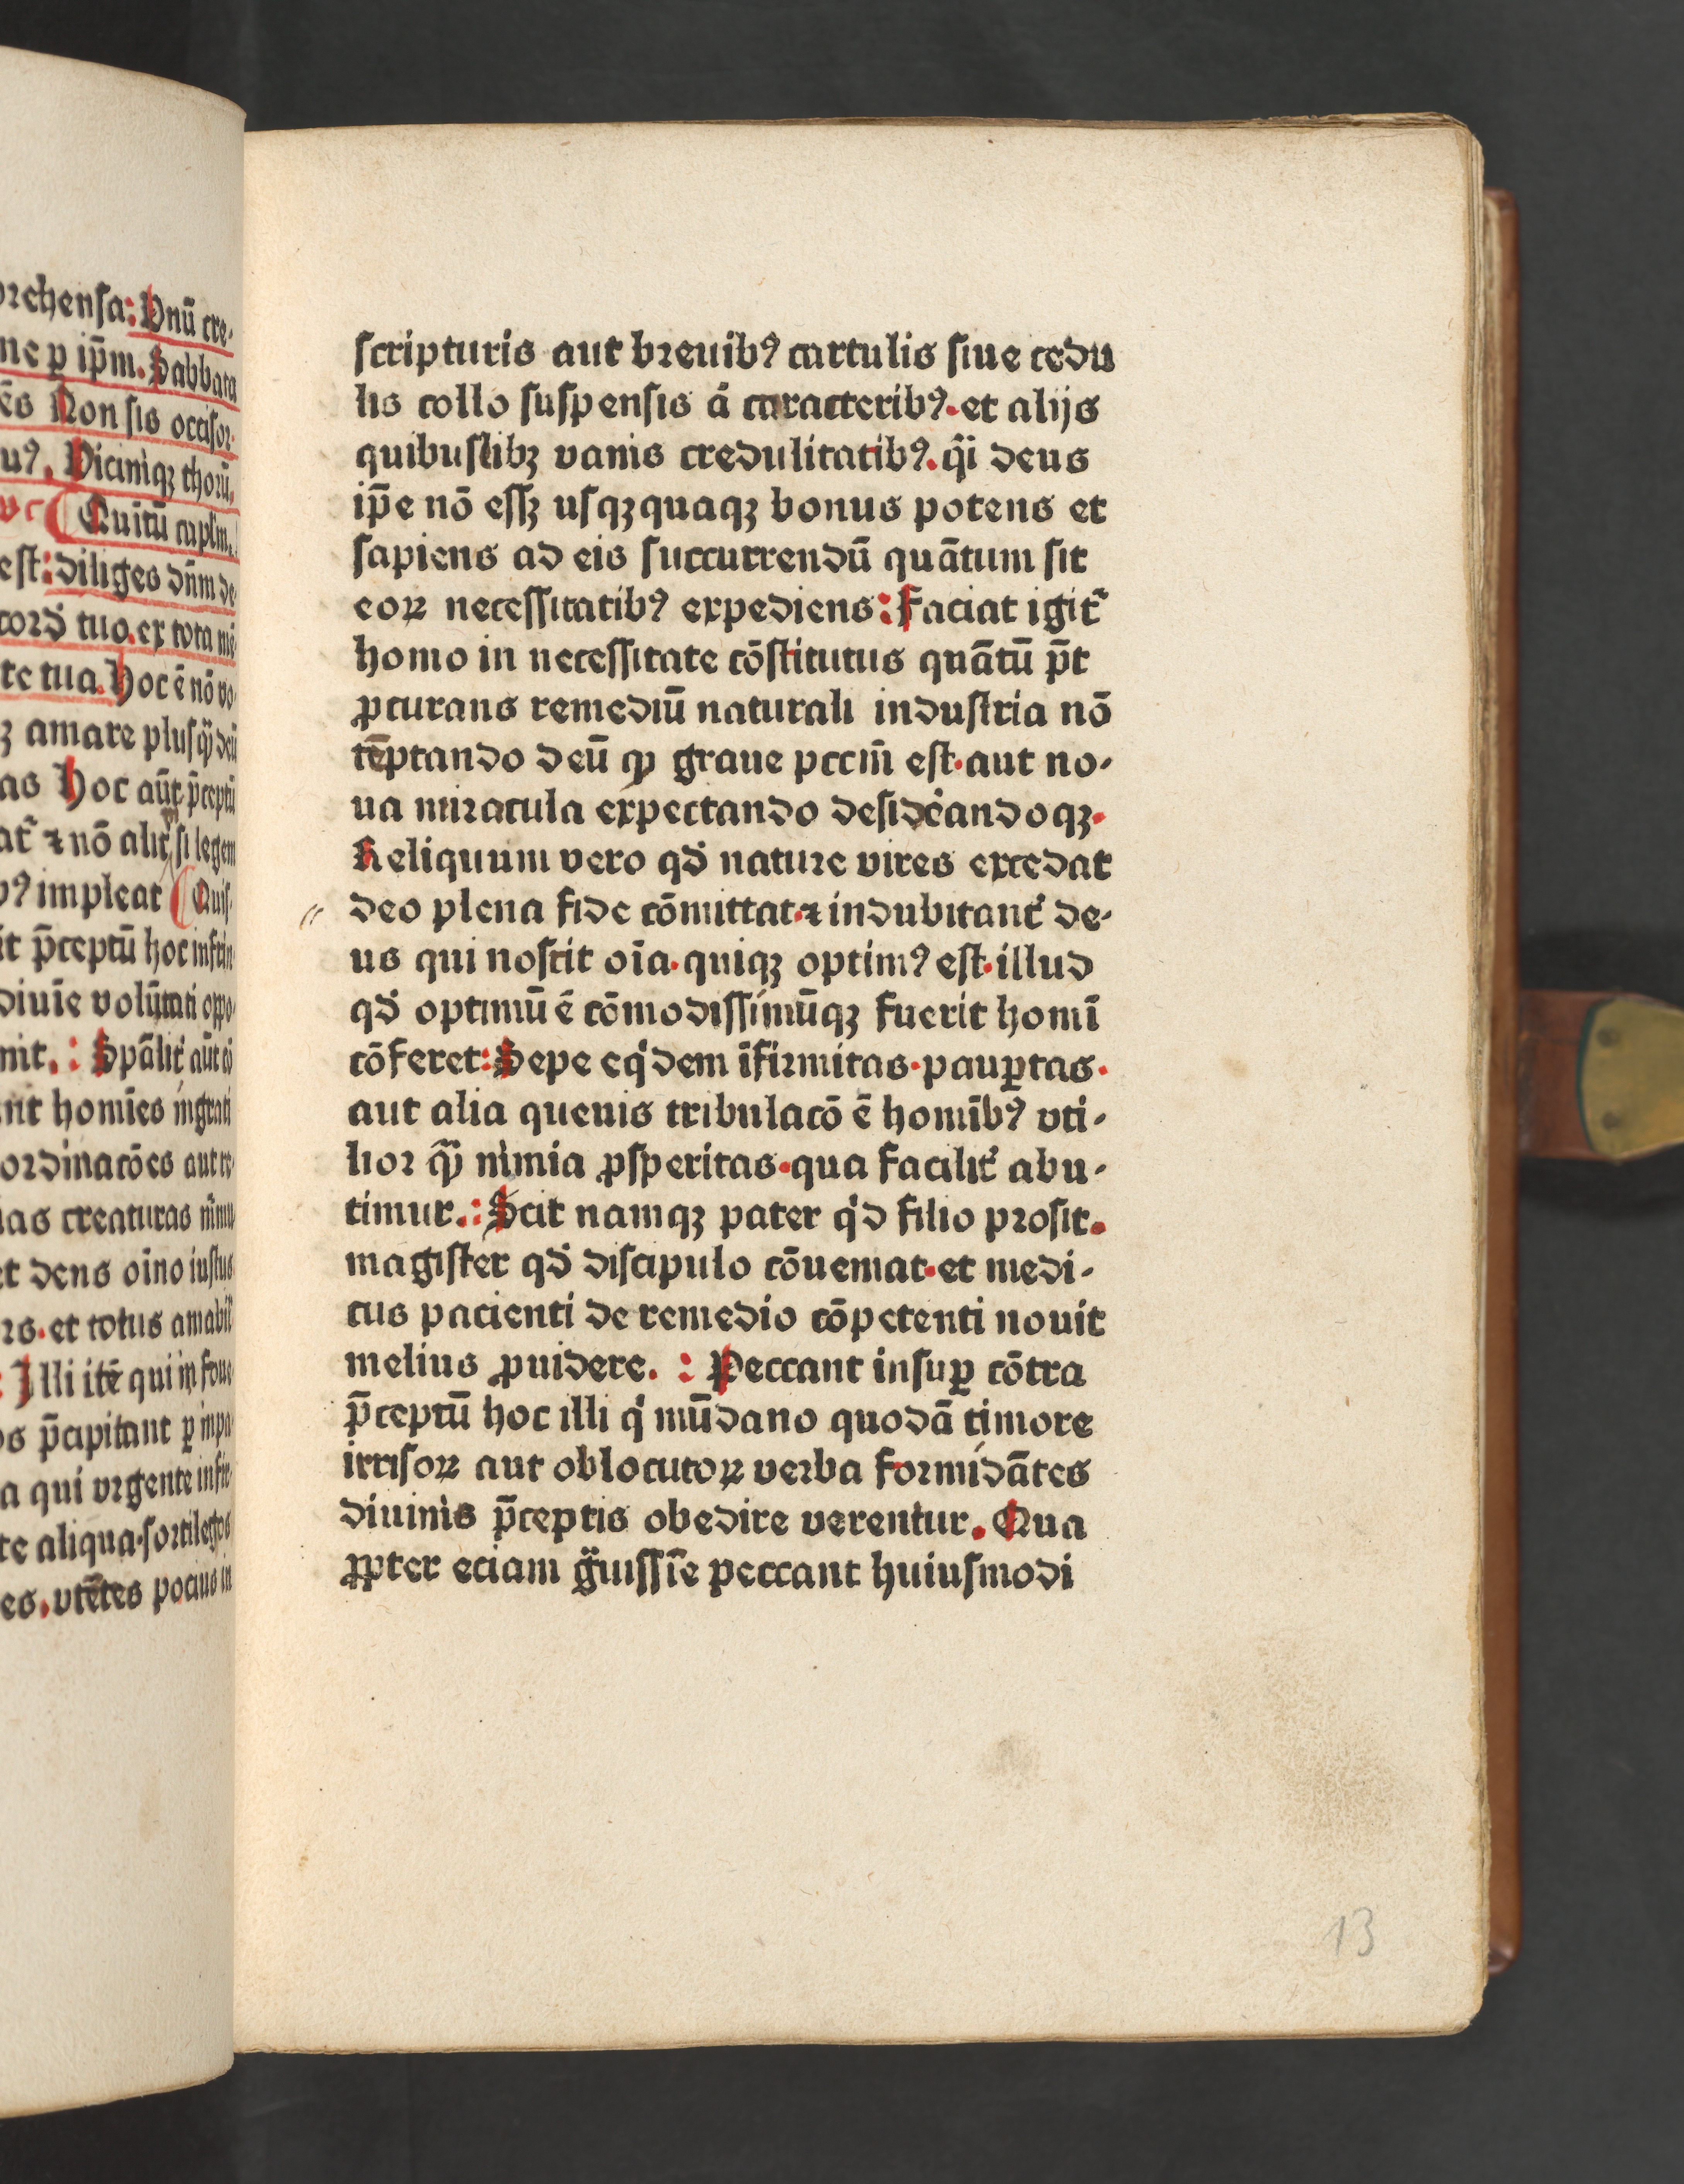 orehensa: Vnū cre-
ne ꝑ ip̄m. Sabbata
ēs Non sis occisor.
Viciniqȝ thorū.
Quītū capl̄m.
est: diliges dn̄m de
cord̕ tuo. ex tota mē
te tua. Hoc ē nō vo
amare plusꝙ̄ deū
as Hoc aūt p̄ceptū
at᷑ ⁊ nō alit᷑ si legem
impleat Quis
it p̄ceptū hoc infrin
diuīe volūtati oppo
nit. : Spāliť aūt cō
nt homīes ingrati
ordinacōes aut re
ias creaturas nimiu
et deus oīno iustus
rs. et totus amabil̄
: Illi itē qui in foue
os p̄cipitant ꝑ impa
a qui vrgente infir
te aliqua. sortilegos
es. vtētes pocius in
scripturis aut breuibꝰ cartulis siue cedu
lis collo suspensis a̅ caracteribꝰ. et alijs
quibuslibȝ vanis credulitatibꝰ. q̄i deus
ip̄e nō essȝ usqȝquaqȝ bonus potens et
sapiens ad eis succurrendū quātum sit
eoꝝ necessitatibꝰ expediens: Faciat igit᷑
homo in necessitate cōstitutus quātū p̄t
ꝓcurans remediū naturali industria nō
tēptando deū ꝙ graue pccm̄ est. aut no-
ua miracula expectando desideādoqȝ.
Reliquum vero qd̕ nature vires excedat
deo plena fide cōmittat. ⁊ indubitant᷑ de-
us qui noscit oīa. quiqȝ optimꝰ est. illud
qd̕ optimū ē cōmodissimūqȝ fuerit homī
cōferet: Sepe eq̇dem īfirmitas. pauꝑtas.
aut alia queuis tribulacō ē homībꝰ vti-
lior ꝙ̄ nimia ꝓsperitas. qua faciliť abu-
timur. : Scit namqȝ pater q̇d filio prosit.
magister qd̕ discipulo cōueniat. et medi-
cus pacienti de remedio cōpetenti nouit
melius ꝓuidere. : Peccant insuꝑ cōtra
p̄ceptū hoc illi q̇ mūdano quodā timore
irrisoꝝ aut oblocutoꝝ verba formidātes
diuinis p̄ceptis obedire verentur. Qua
ꝓpter eciam g̈uissīe peccant huiusmodi
13